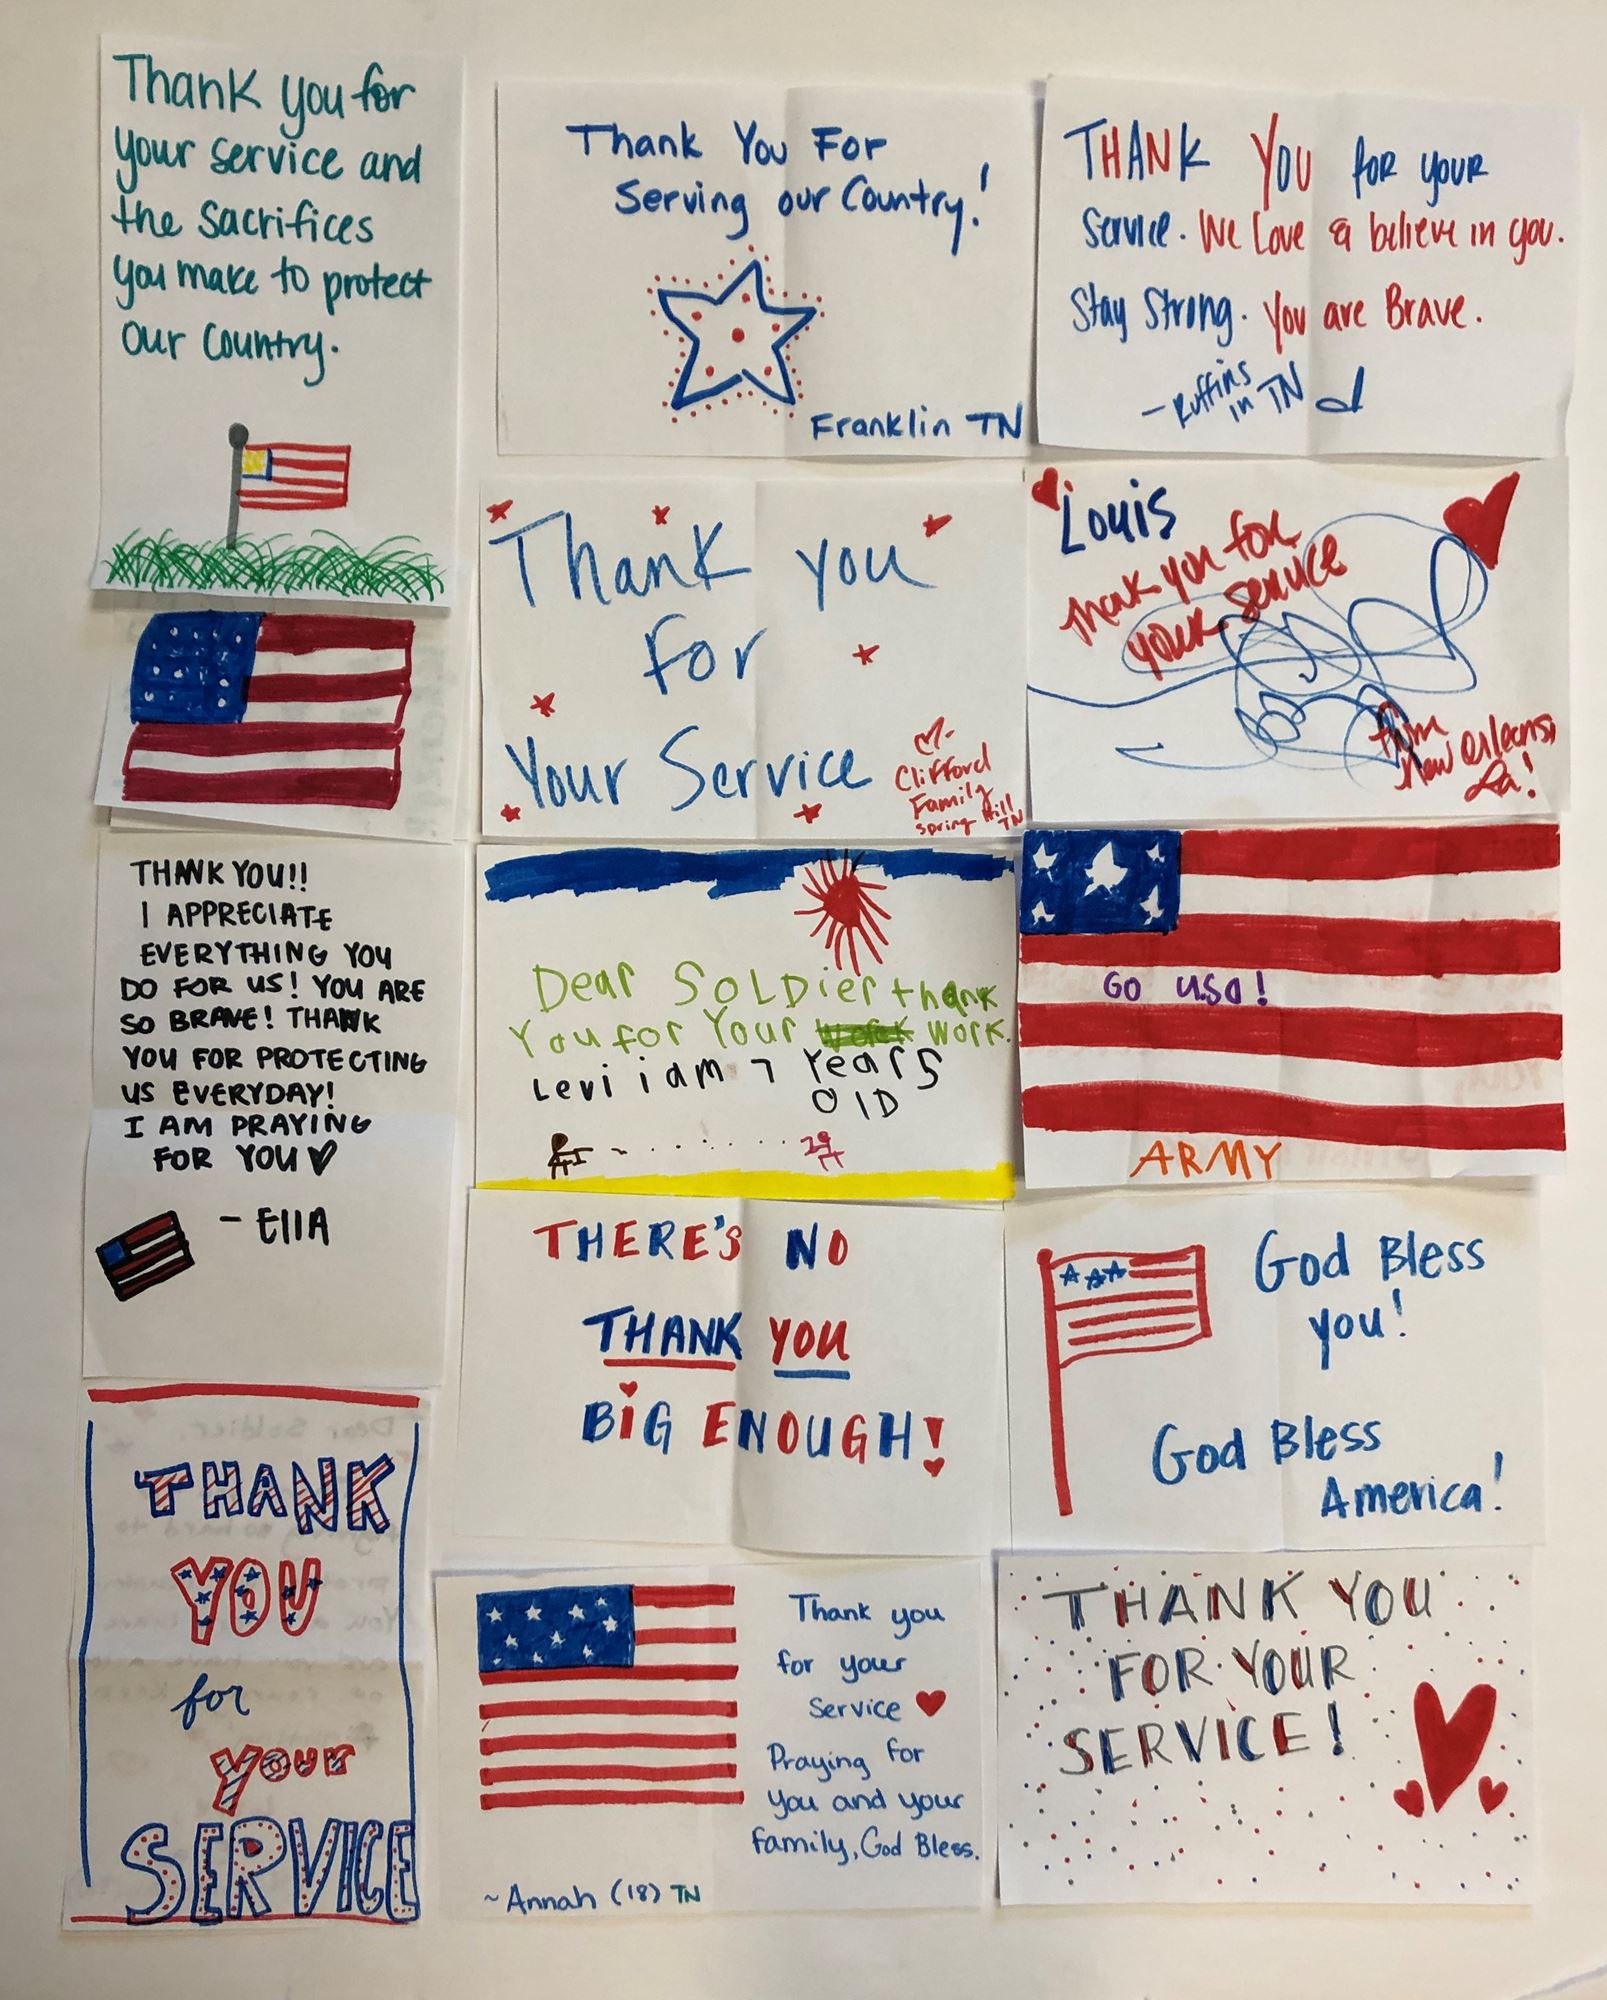 Thank you for
your service and
the sacrifices
you make to protect
our country.
Thank You For
Serving our Country!
Franklin TN
THANK YOU for your
Service. We Love & believe in you.
Stay Strong. You are Brave.
- Ruffins
in TN
Thank you
for
Your Service
Clifford
Family
Spring Hill
TN
Louis
Thank you for
your service
from
New Orleans,
La!
THANK YOU!!
I APPRECIATE
EVERYTHING YOU
DO FOR US! YOU ARE
SO BRAVE! THANK
YOU FOR PROTECTING
US EVERYDAY!
I AM PRAYING
FOR YOU
- EllA
Dear SOLDier thank
You for Your work.
Levi i am 7 Years
OlD
GO USA!
ARMY
THERE'S NO
THANK YOU
BiG ENOUGH!
God Bless
you!
God Bless
America!
THANK
YOU
for
Your
SERVICE
Thank you
for your
Service
Praying for
you and your
family, God Bless.
~Annah (18) TN
THANK YOU
FOR YOUR
SERVICE!